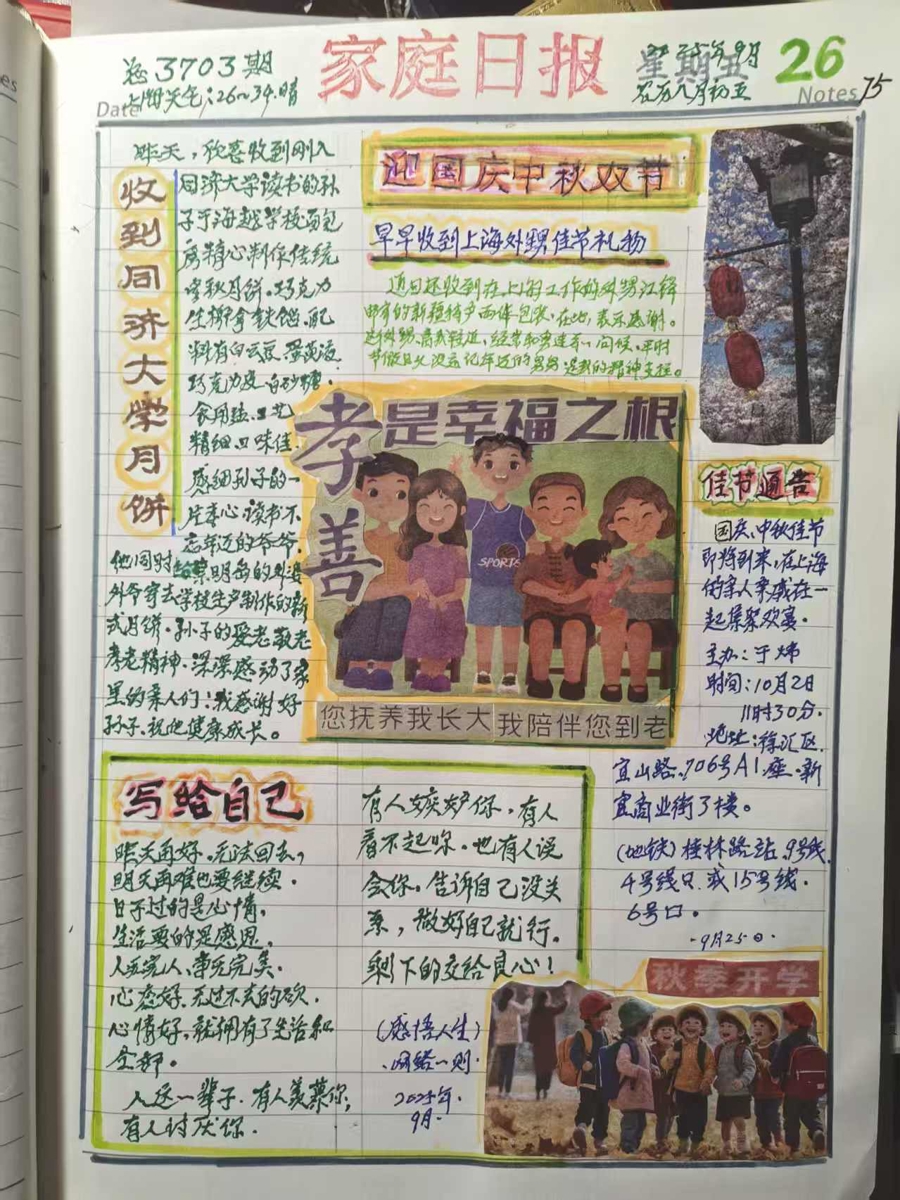 总3703期
上海天气:26~34.晴
家庭日报
星期五
25年9月
农历八月初五
26
Date
Notes 75
收到同济大学月饼
昨天，欣喜收到刚入
同济大学读书的孙
子于海越学校面包
房精心制作传统
中秋月饼。巧克力
配
料有白云豆.蛋黄液
巧克力皮.白砂糖.
食用盐.工艺
精细口味佳.
感细孙子的一
片孝心读书不
忘年迈的爷爷.
他同时给崇明岛的外婆
外爷寄去学校生产制作的新
式月饼.孙子的爱老敬老
孝老精神.深深感动了家
里的亲人们:我感谢好
孙子.祝他健康成长。
迎国庆中秋双节
早早收到上海外甥佳节礼物
近日还收到在上海工作的外甥江锋
邮寄的新疆特产西体包装.在此,表示感谢。
这外甥.离我较近,经常和舅连系.问候.平时
节假日又没忘记年迈的舅舅.是我的精神支柱。
孝善
是幸福之根
SPORTS
您抚养我长大 我陪伴您到老
佳节通告
国庆、中秋佳节
即将到来,在上海
的亲人亲戚在一
起集聚欢宴.
主办:于炜
时间:10月2日
11时30分.
地址:徐汇区.
宜山路.706号A1.座.新
宜商业街3楼。
(地铁)桂林路站.9号线.
4号线口.或15号线.
6号口.
.9月25日.
写给自己
昨天再好.无法回去,
明天再难也要继续.
日子过的是心情,
生活要的是感恩.
人无完人,事无完美.
心态好.无过不去的坎.
心情好,就拥有了生活和
全部。
人这一辈子.有人羡慕你,
有人讨厌你.
有人嫉妒你,有人
看不起你.也有人误
会你.告诉自己没关
系,做好自己就行.
剩下的交给良心!
(感悟人生)
.网络一则.
2025年.
9月.
秋季开学